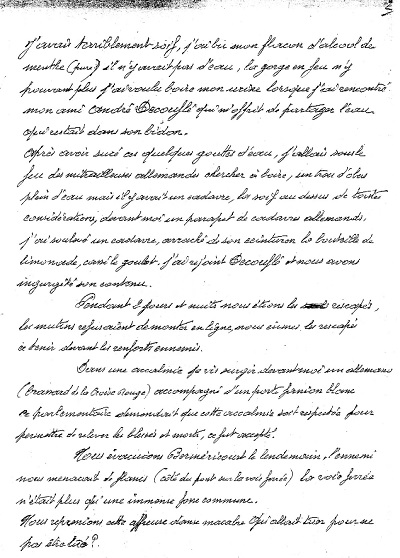 J'avais terriblement soif, j'ai bu mon flacon d'alcool de
menthe (pur) il n'y avait pas d'eau, la gorge en feu n'y
pouvant plus j'ai voulu boire mon urine lorsque j'ai rencontré
mon ami André Decouflé qui m'offrit de partager l'eau
qui restait dans son bidon.
Après avoir sucé ces quelques gouttes d'eau, j'allais sous le
feu des mitrailleuses allemandes chercher à boire, un trou d'obus
plein d'eau mais il y avait un cadavre, la soif au dessus de toutes
considérations, devant moi un parapet de cadavres allemands.
j'ai soulevé un cadavre, arraché de son ceinturon la bouteille de
limonade, cassé le goulot. j'ai rejoint Decouflé et nous avons
ingurgité son contenu.
Pendant 3 jours et nuits nous étions les rescapés,
les mutins refusaient de monter en ligne, nous eumes, les rescapés
à tenir devant les renforts ennemis.
Dans une accalmie je vis surgir devant moi un allemand
(brancard de la Croix Rouge) accompagné d'un porte fanion blanc
ce parlementaire demandait que cette accalmie soit respectée pour
permettre de relever les blessés et morts, ce fut accepté.
Nous évacuions Berméricourt le lendemain, l'ennemi
nous menaçait de flancs (côté du pont sur la voie ferrée) la voie ferrée
n'était plus qu'une immense fosse commune.
Nous reprenions cette affreuse danse macabre qui allait tuer pour ne
pas être tué ?.